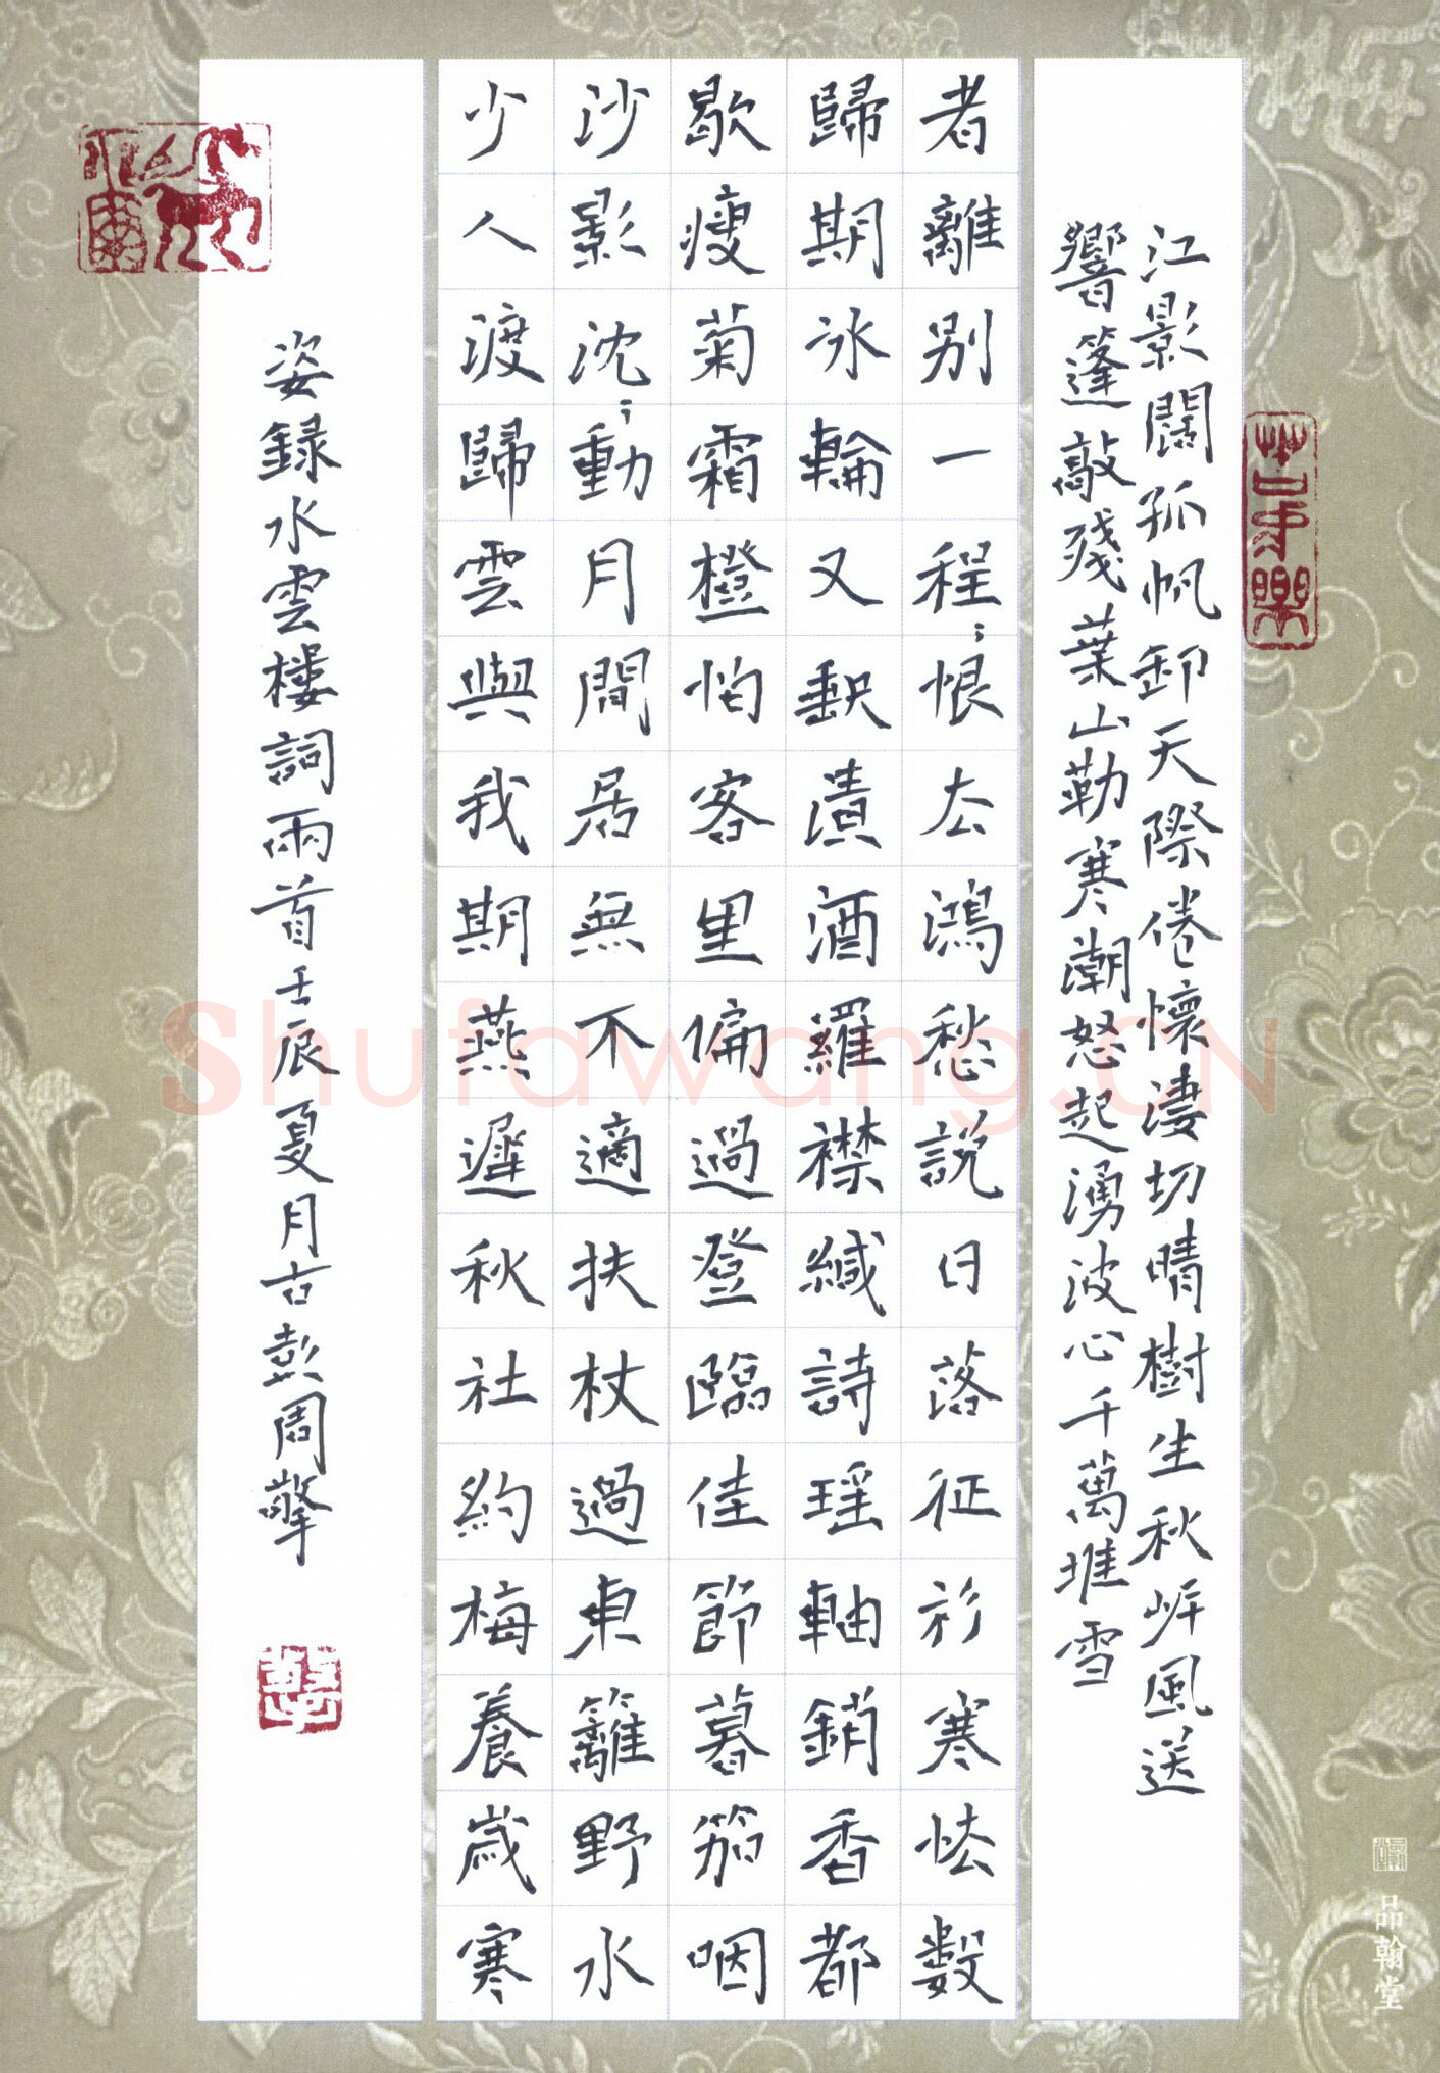 江影闊孤帆卸天際倦懷淒切晴樹生秋岸風送
響篷敲殘葉山勒寒潮怒起湧波心千萬堆雪
者離別一程〻恨去鴻愁說日落征衫寒怯數
歸期冰輪又缺漬酒羅襟緘詩瑤軸銷香都
歇瘦菊霜橙怕客里偏過登臨佳節暮笳咽
沙影沈〻動月間居無不適扶杖過東籬野水
少人渡歸雲與我期燕遲秋社約梅養歲寒
姿錄水雲樓詞兩首壬辰夏月古彭周擎
品翰堂
Shufawang.CN